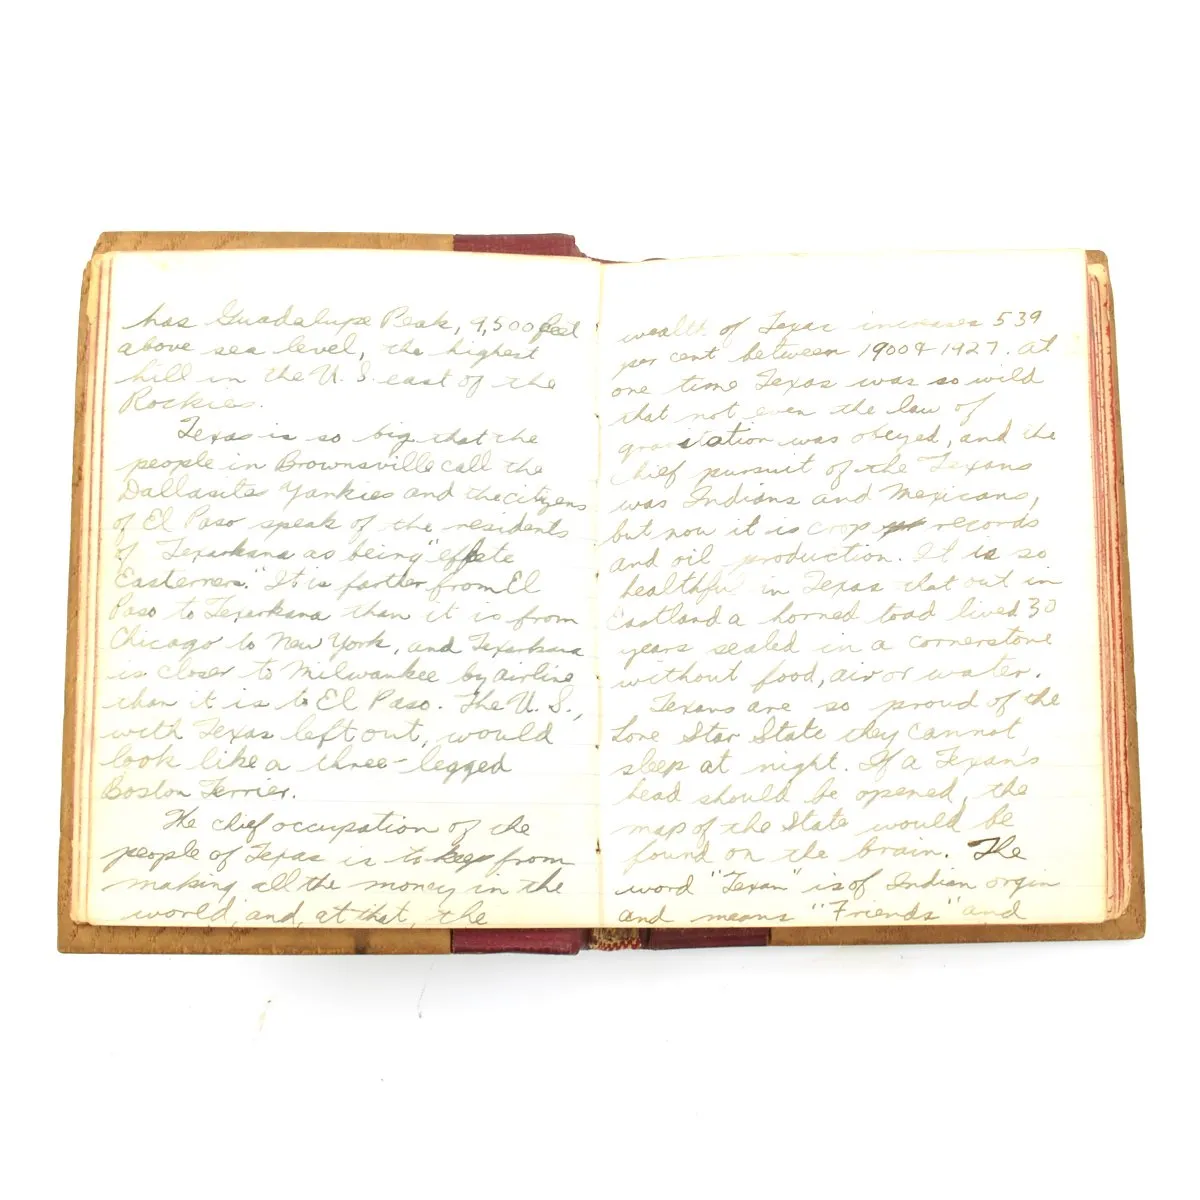 has Guadalupe Peak, 9,500 feet
above sea level, the highest
hill in the U. S. east of the
Rockies.
Texas is so big that the
people in Brownsville call the
Dallasites Yankies and the citizens
of El Paso speak of the residents
of Texarkana as being "effete
Easterners." It is farther from El
Paso to Texarkana than it is from
Chicago to New York, and Texarkana
is closer to Milwaukee by airline
than it is to El Paso. The U. S.,
with Texas left out, would
look like a three-legged
Boston Terrier.
The chief occupation of the
people of Texas is to keep from
making all the money in the
world, and, at that, the
wealth of Texas increases 539
per cent between 1900 & 1927. At
one time Texas was so wild
that not even the law of
gravitation was obeyed, and the
chief pursuit of the Texans
was Indians and Mexicans,
but now it is crop records
and oil production. It is so
healthful in Texas that out in
Eastland a horned toad lived 30
years sealed in a cornerstone
without food, air or water.
Texans are so proud of the
Lone Star State they cannot
sleep at night. If a Texan's
head should be opened, the
map of the State would be
found on the brain. The
word "Texan" is of Indian orgin
and means "Friends" and